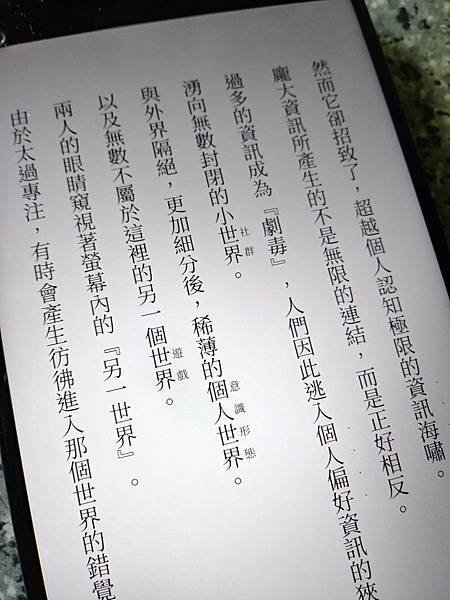 然而它卻招致了，超越個人認知極限的資訊海嘯。
龐大資訊所產生的不是無限的連結，而是正好相反。
過多的資訊成為『劇毒』，人們因此逃入個人偏好資訊的狹
社群
湧向無數封閉的小世界。
意識形態
與外界隔絕，更加細分後，稀薄的個人世界。
遊戲
以及無數不屬於這裡的另一個世界。
兩人的眼睛窺視著螢幕內的『另一世界』。
由於太過專注，有時會產生彷彿進入那個世界的錯覺